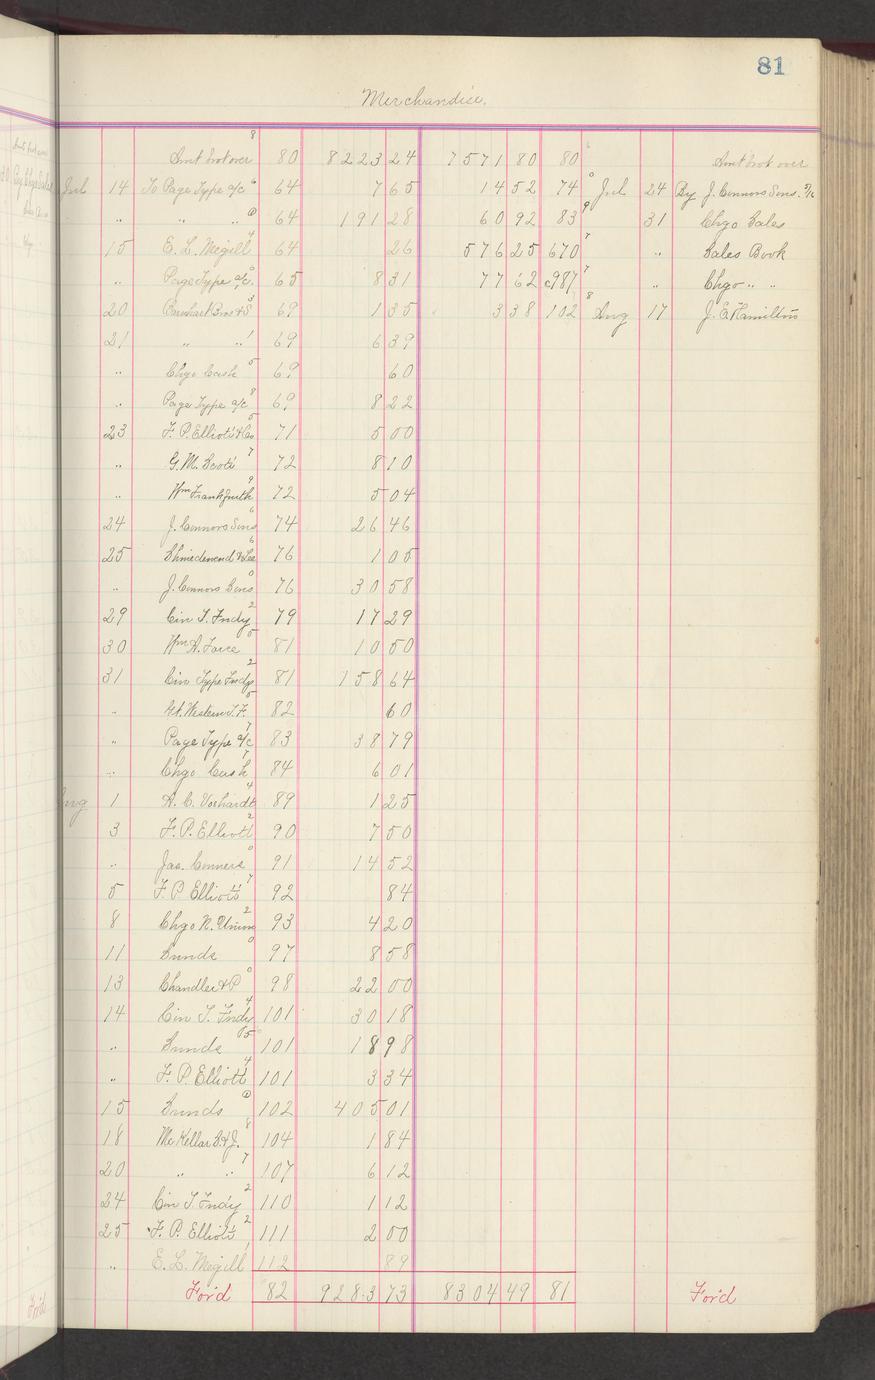 81
Merchandise.
Amt brot over 8 80 8223 24 7571 80 80 Amt brot over
Jul 14 To Page Type a/c 6 64 7 65 14 52 74 0 Jul 24 By J. Connors Sons.
" " " 64 191 28 60 92 83 9 31 Chgo Sales
15 E. L. Megill 4 64 26 576 25 670 7 " Sales Book
" Page Type a/c. 0 65 8 31 77 62 c987 7 " Chgo " "
20 Barnhart Bros & S 3 69 1 35 3 38 102 8 Aug 17 J. E. Hamilton
21 " " 1 69 6 39
" Chgo Cash 5 69 60
" Page Type a/c 8 69 8 22
23 F. P. Elliott & Co 5 71 5 00
" G. M. Scott 7 72 8 10
" Wm Frankfurth 9 72 5 04
24 J. Connors Sons 6 74 26 46
25 Shniedewend & Lee 6 76 1 05
" J. Connors Sons 0 76 30 58
29 Cin T. Fndy 2 79 17 29
30 Wm A. Force 5 81 10 50
31 Cin Type Fndy 2 81 158 64
" Gt. Western T. F. 5 82 60
" Page Type a/c 7 83 38 79
" Chgo Cash 7 84 6 01
Aug 1 A. C. 4 89 1 25
3 F. P. Elliott 2 90 7 50
" Jas. Conners 0 91 14 52
5 F. P. Elliott 7 92 84
8 Chgo N. Union 2 93 4 20
11 Sunds 0 97 8 58
13 Chandler & P 0 98 22 00
14 Cin T. Fndy 4 101 30 18
" Sunds 101 18 98
" F. P. Elliott 4 101 3 34
15 Sunds 102 405 01
18 McKellar S. & J. 8 104 1 84
20 " " 7 107 6 12
24 Cin T. Fndy 2 110 1 12
25 F. P. Elliott 2 111 2 00
" E. L. Megill 1 112 89
For'd 82 9283 73 8304 49 81 For'd